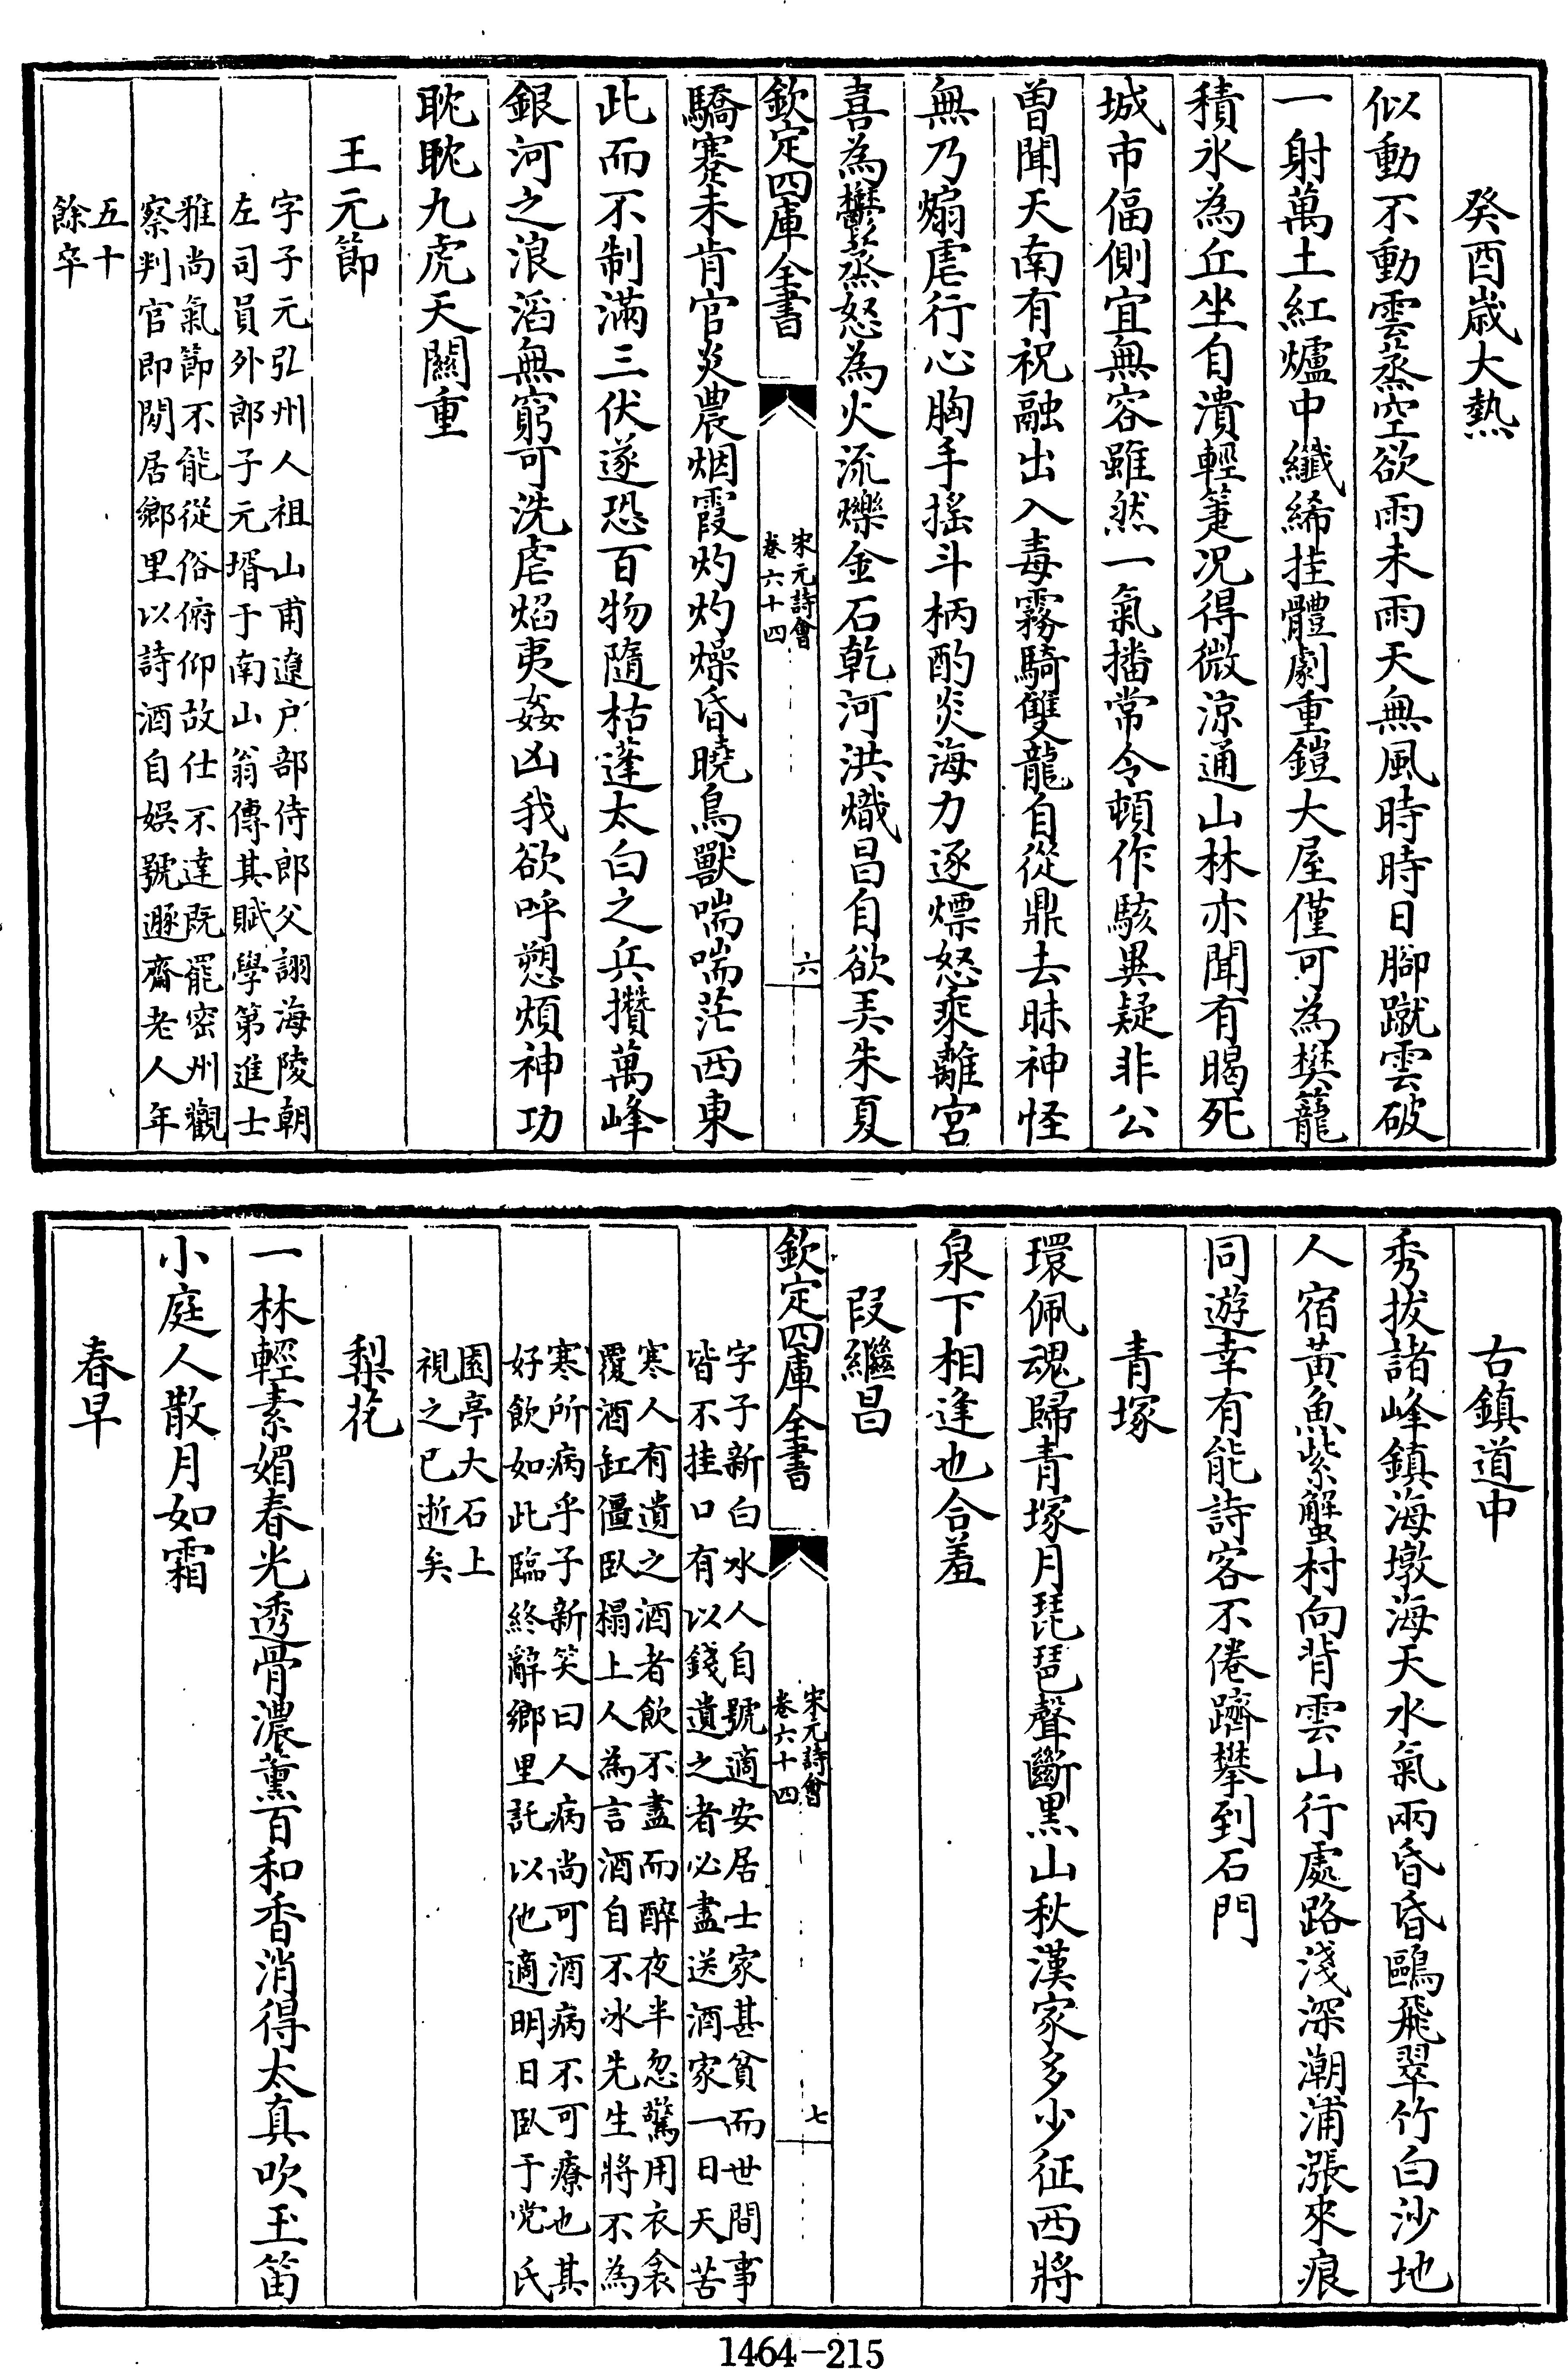 癸酉歳大熱
似動不動雲蒸空欲雨未雨天無風時時日腳蹴雲破
一射萬土紅爐中纖絺挂體劇重鎧大屋僅可為樊籠
積氷為丘坐自潰輕箑况得微涼通山林亦聞有暍死
城市偪側宜無容雖然一氣播常令頓作駭異疑非公
曽聞天南有祝融出入毒霧騎雙龍自從鼎去昧神怪
無乃煽虐行心胸手搖斗柄酌炎海力逐熛怒乘離宮
喜為欝蒸怒為火流爍金石乾河洪熾昌自欲弄朱夏
欽定四庫全書
宋元詩會
卷六十四
六
驕蹇未肯官炎農烟霞灼灼燥昏曉鳥獸喘喘茫西東
此而不制滿三伏遂恐百物隨枯蓬太白之兵攢萬峰
銀河之浪滔無窮可洗虐焰夷姦凶我欲呼愬煩神功
耽耽九虎天闗重
王元節
字子元弘州人祖山甫遼户部侍郎父詡海陵朝
左司員外郎子元壻于南山翁傳其賦學第進士
雅尚氣節不能從俗俯仰故仕不達既罷密州觀
察判官即閒居鄉里以詩酒自娱號遯齋老人年
五十
餘卒
古鎮道中
秀拔諸峰鎮海墩海天水氣兩昏昏鷗飛翠竹白沙地
人宿黃魚紫蟹村向背雲山行處路淺深潮浦漲來痕
同遊幸有能詩客不倦躋攀到石門
青塚
環佩魂歸青塚月琵琶聲斷黒山秋漢家多少征西將
泉下相逢也合羞
叚繼昌
欽定四庫全書
宋元詩會
卷六十四
七
字子新白水人自號適安居士家甚貧而世間事
皆不挂口有以錢遺之者必盡送酒家一日天苦
寒人有遺之酒者飲不盡而醉夜半忽驚用衣衾
覆酒缸僵臥榻上人為言酒自不冰先生將不為
寒所病乎子新笑曰人病尚可酒病不可療也其
好飲如此臨終辭鄉里託以他適明日臥于党氏
園亭大石上
視之已逝矣
梨花
一林輕素媚春光透骨濃薰百和香消得太真吹玉笛
小庭人散月如霜
春早
1464-215